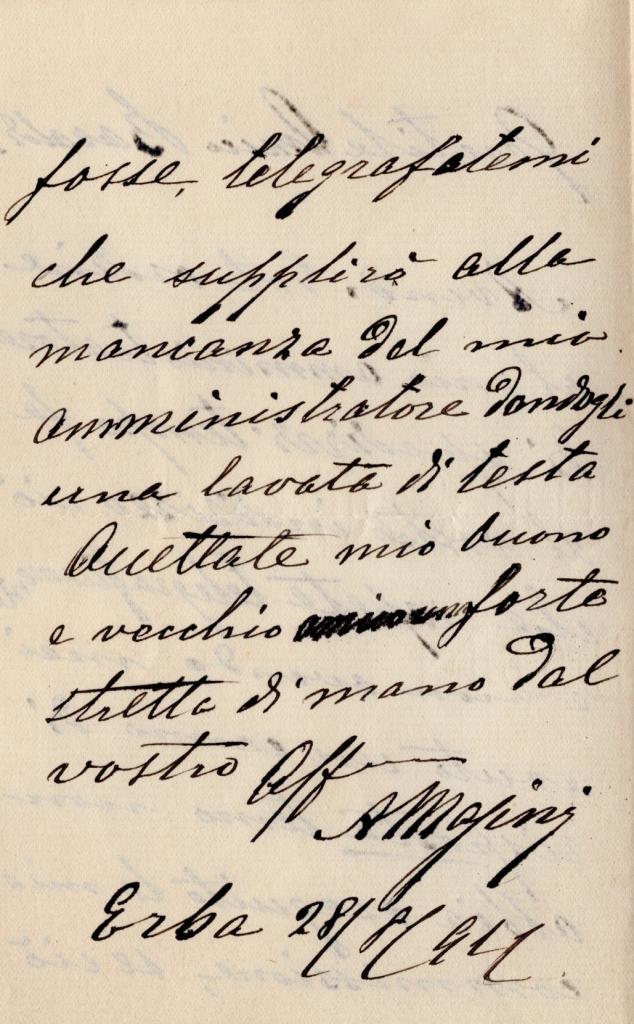 fosse, telegrafatemi
che supplirò alla
mancanza del mio
amministratore dandogli
una lavata di testa
Accettate mio buono
e vecchio amico un forte
stretta di mano dal
vostro Aff
A Mapini
Erba 28/8/94